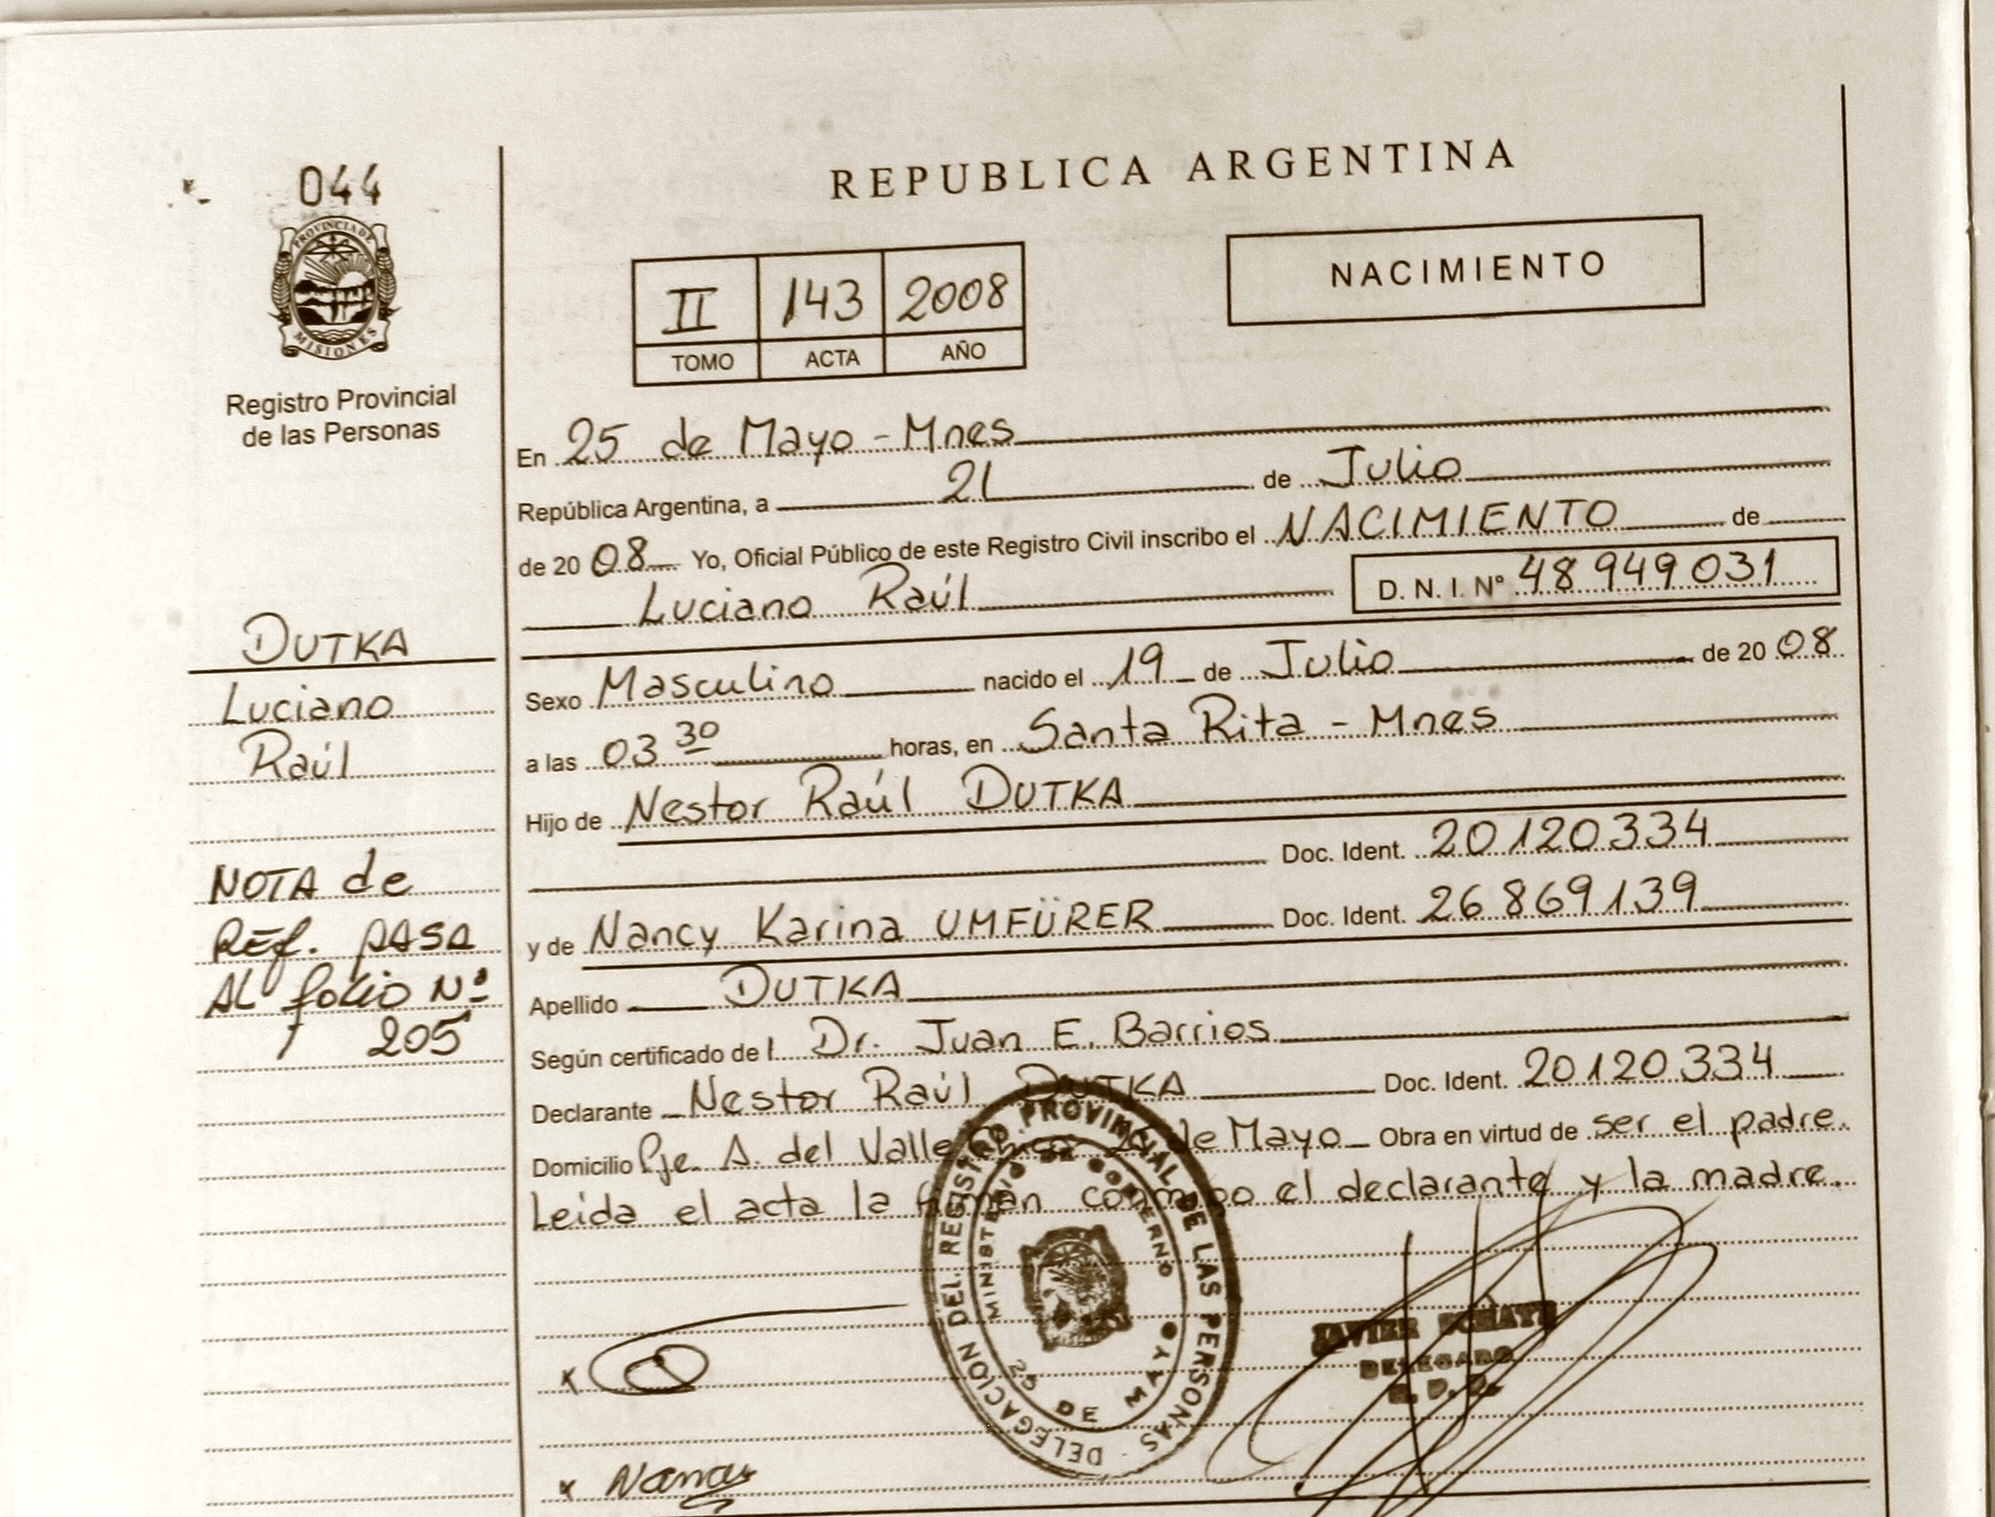 044
PROVINCIA DE
MISIONES
Registro Provincial
de las Personas
REPUBLICA ARGENTINA
NACIMIENTO
II 143 2008
TOMO ACTA AÑO
En 25 de Mayo - Mnes
República Argentina, a 21 de Julio
de 2008 Yo, Oficial Público de este Registro Civil inscribo el NACIMIENTO de
Luciano Raúl D. N. I. Nº 48 949 031
DUTKA
Luciano
Raúl
NOTA de
REf. PASA
AL folio Nº
205
Sexo Masculino nacido el 19 de Julio de 2008
a las 03 30 horas, en Santa Rita - Mnes
Hijo de Nestor Raúl DUTKA
Doc. Ident. 20 120 334
y de Nancy Karina UMFÜRER Doc. Ident. 26 869 139
Apellido DUTKA
Según certificado de l Dr. Juan E. Barrios
Declarante Nestor Raúl DUTKA Doc. Ident. 20 120 334
Domicilio Pje. A. del Valle de Mayo Obra en virtud de ser el padre.
Leida el acta la firman conmigo el declarante y la madre.
DELEGACION DEL REGISTRO PROVINCIAL DE LAS PERSONAS
MINISTERIO DE GOBIERNO
25 DE MAYO
JAVIER
DELEGADO
x
x